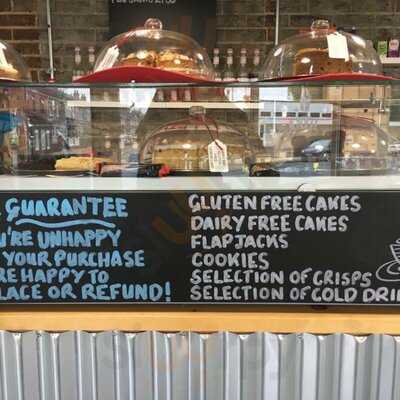 GUARANTEE
UNHAPPY
YOUR PURCHASE
HAPPY TO
OR REFUND!
GLUTEN FREE CAKES
DAIRY FREE CAKES
FLAPJACKS
COOKIES
SELECTION OF CRISPS
SELECTION OF COLD